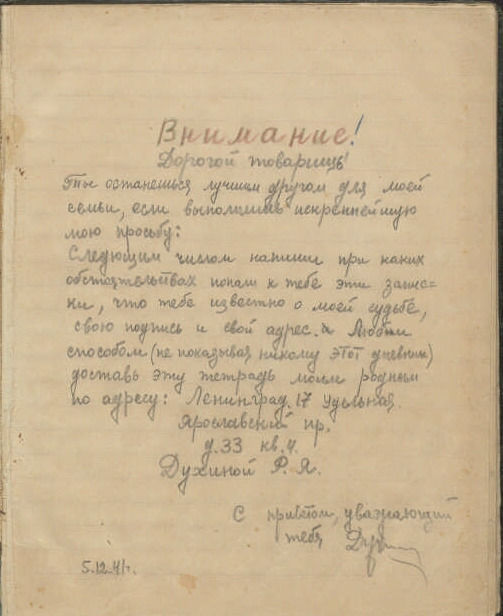 Внимание!
Дорогой товарищ!
Ты останешься лучшим другом для моей
семьи, если выполнишь искреннейшую
мою просьбу:
Следующим числом напиши при каких
обстоятельствах попали к тебе эти запис=
ки, что тебе известно о моей судьбе,
свою подпись и свой адрес. Любым
способом (не показывая никому этот дневник)
доставь эту тетрадь моим родным
по адресу: Ленинград. 17 Удельная
Ярославский пр.
д. 33 кв. 4.
Духиной Р. Я.
С приветом, уважающий
тебя
5.12.41г.